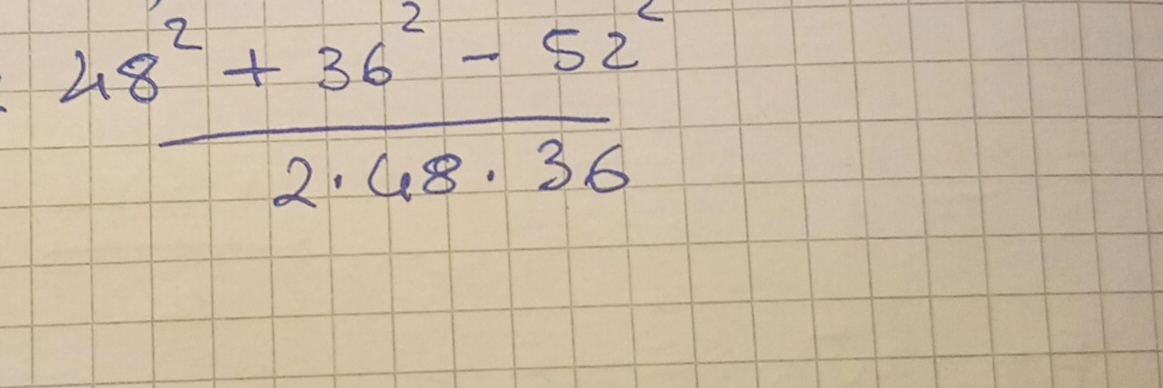 48² + 36² - 52²
2 · 48 · 36